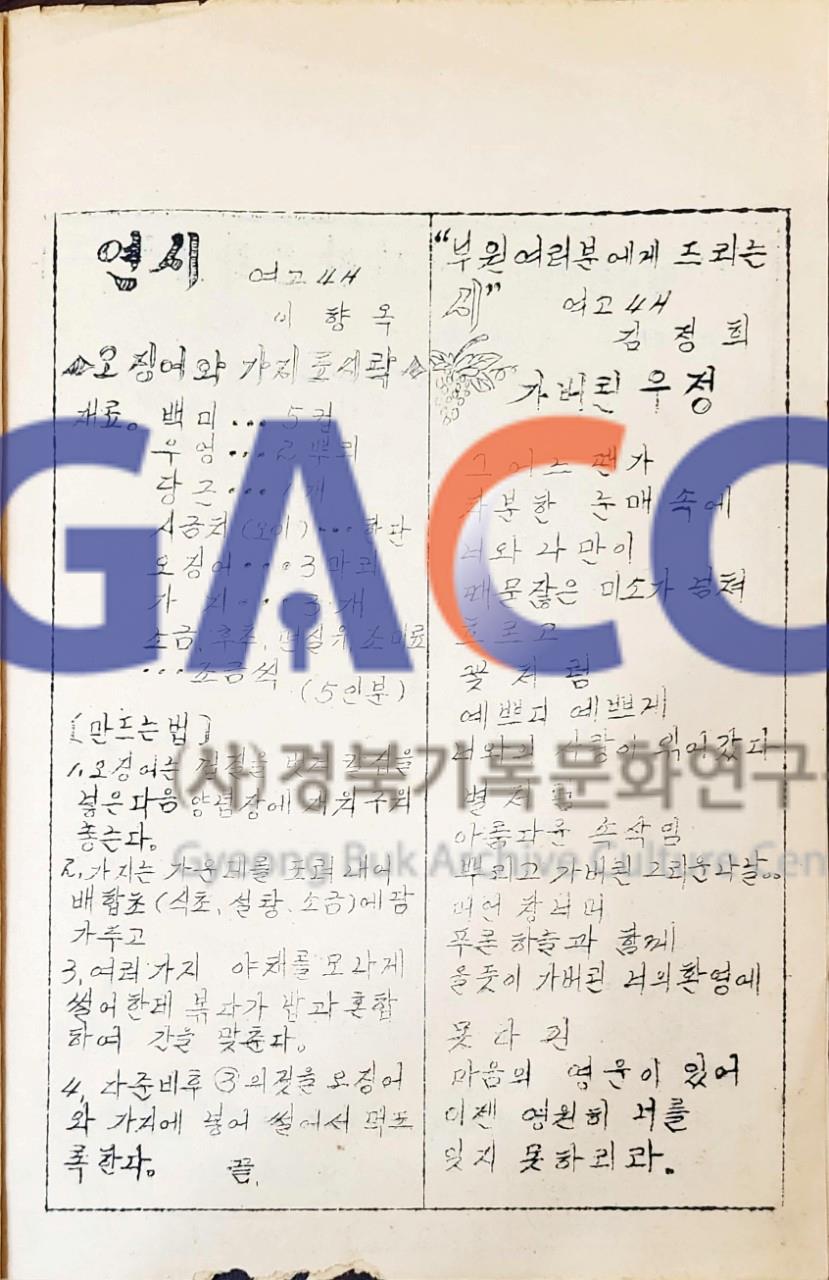 연시
여고 4H
이 향 옥
오징어와 가지료세락
재료。 백미 ... 5컵
우엉 ... 2뿌리
당근 ... 1개
시금치 (오이) ... 한단
오징어 ... 3마리
가 지 ... 3개
소금, 후추, 면실유, 조미료
... 조금씩
(5인분)
[만드는법]
1. 오징어는 껍질을 벗겨
넣은다음 양념장에 재워구워
좋는다。
2. 가지는 가운데를 도려내어
배합초 (식초, 설탕, 소금)에 담
가주고
3. 여러가지 야채를 모나게
썰어한데 볶다가 밥과 혼합
하여 간을 맞춘다。
4. 다준비후 ③의것을 오징어
와 가지에 넣어 썰어서 먹도
록한다。 끝.
“부원여러분에게 드리는
시”
여고 4H
김 정 희
가버린 우정
그 어느 땐가
차분한 눈매 속에
너와 나만이
때묻잖은 미소가 넘쳐
흐르고
꽃처럼
예쁘디 예쁘게
너와의 사랑이 익어갔다
별처럼
아름다운 속삭임
뿌리고 가버린 그리운나날。。
푸른하늘과 함께
울듯이 가버린 너의환영에
못다핀
마음의 영운이 있어
이젠 영원히 너를
잊지 못하리라.
GACC
(사)경북기록문화연구
Gyeong Buk Archive Culture Cen